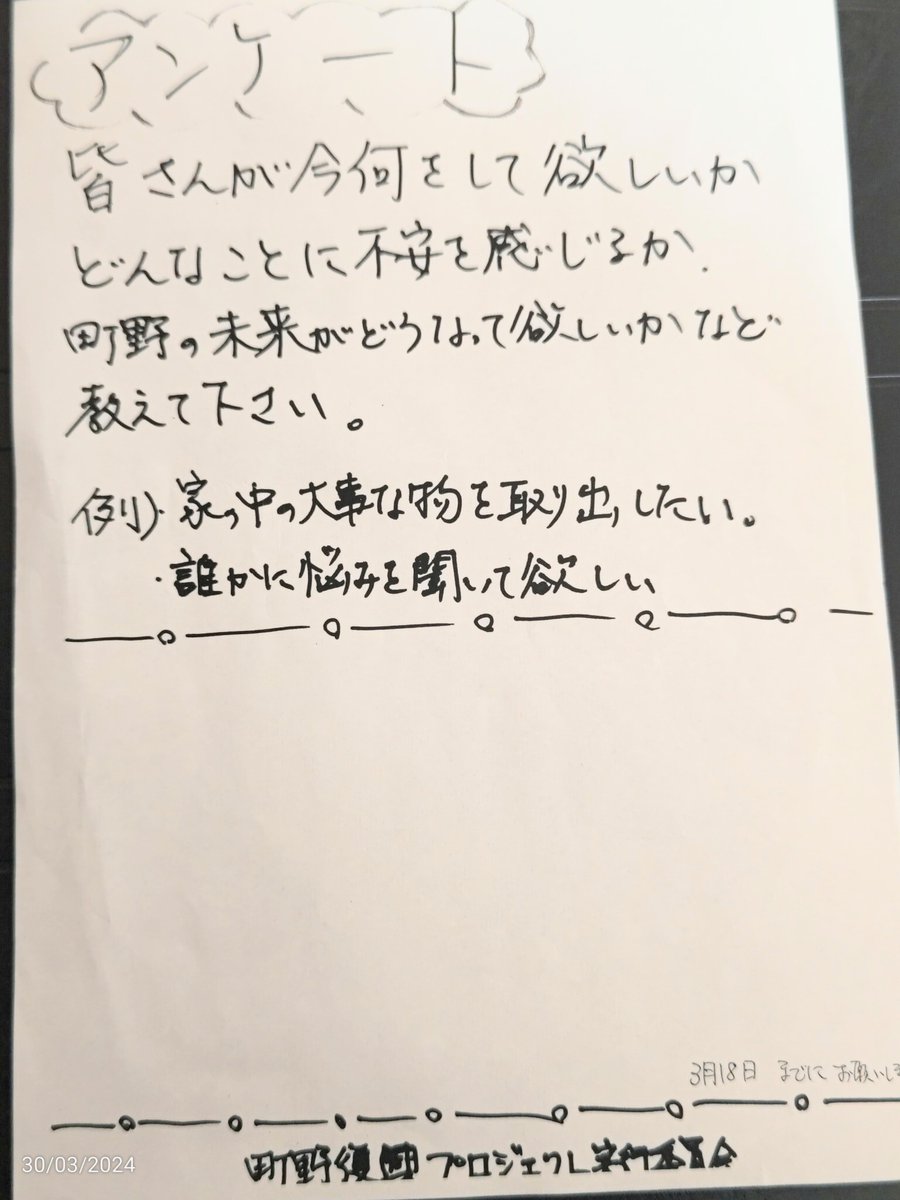 アンケート
皆さんが今何をして欲しいか
どんなことに不安を感じるか、
町野の未来がどうなって欲しいかなど
教えて下さい。
例)・家の中の大事な物を取り出したい。
・誰かに悩みを聞いて欲しい
3月18日 までに お願いしま
町野復興プロジェクト実行委員会
30/03/2024